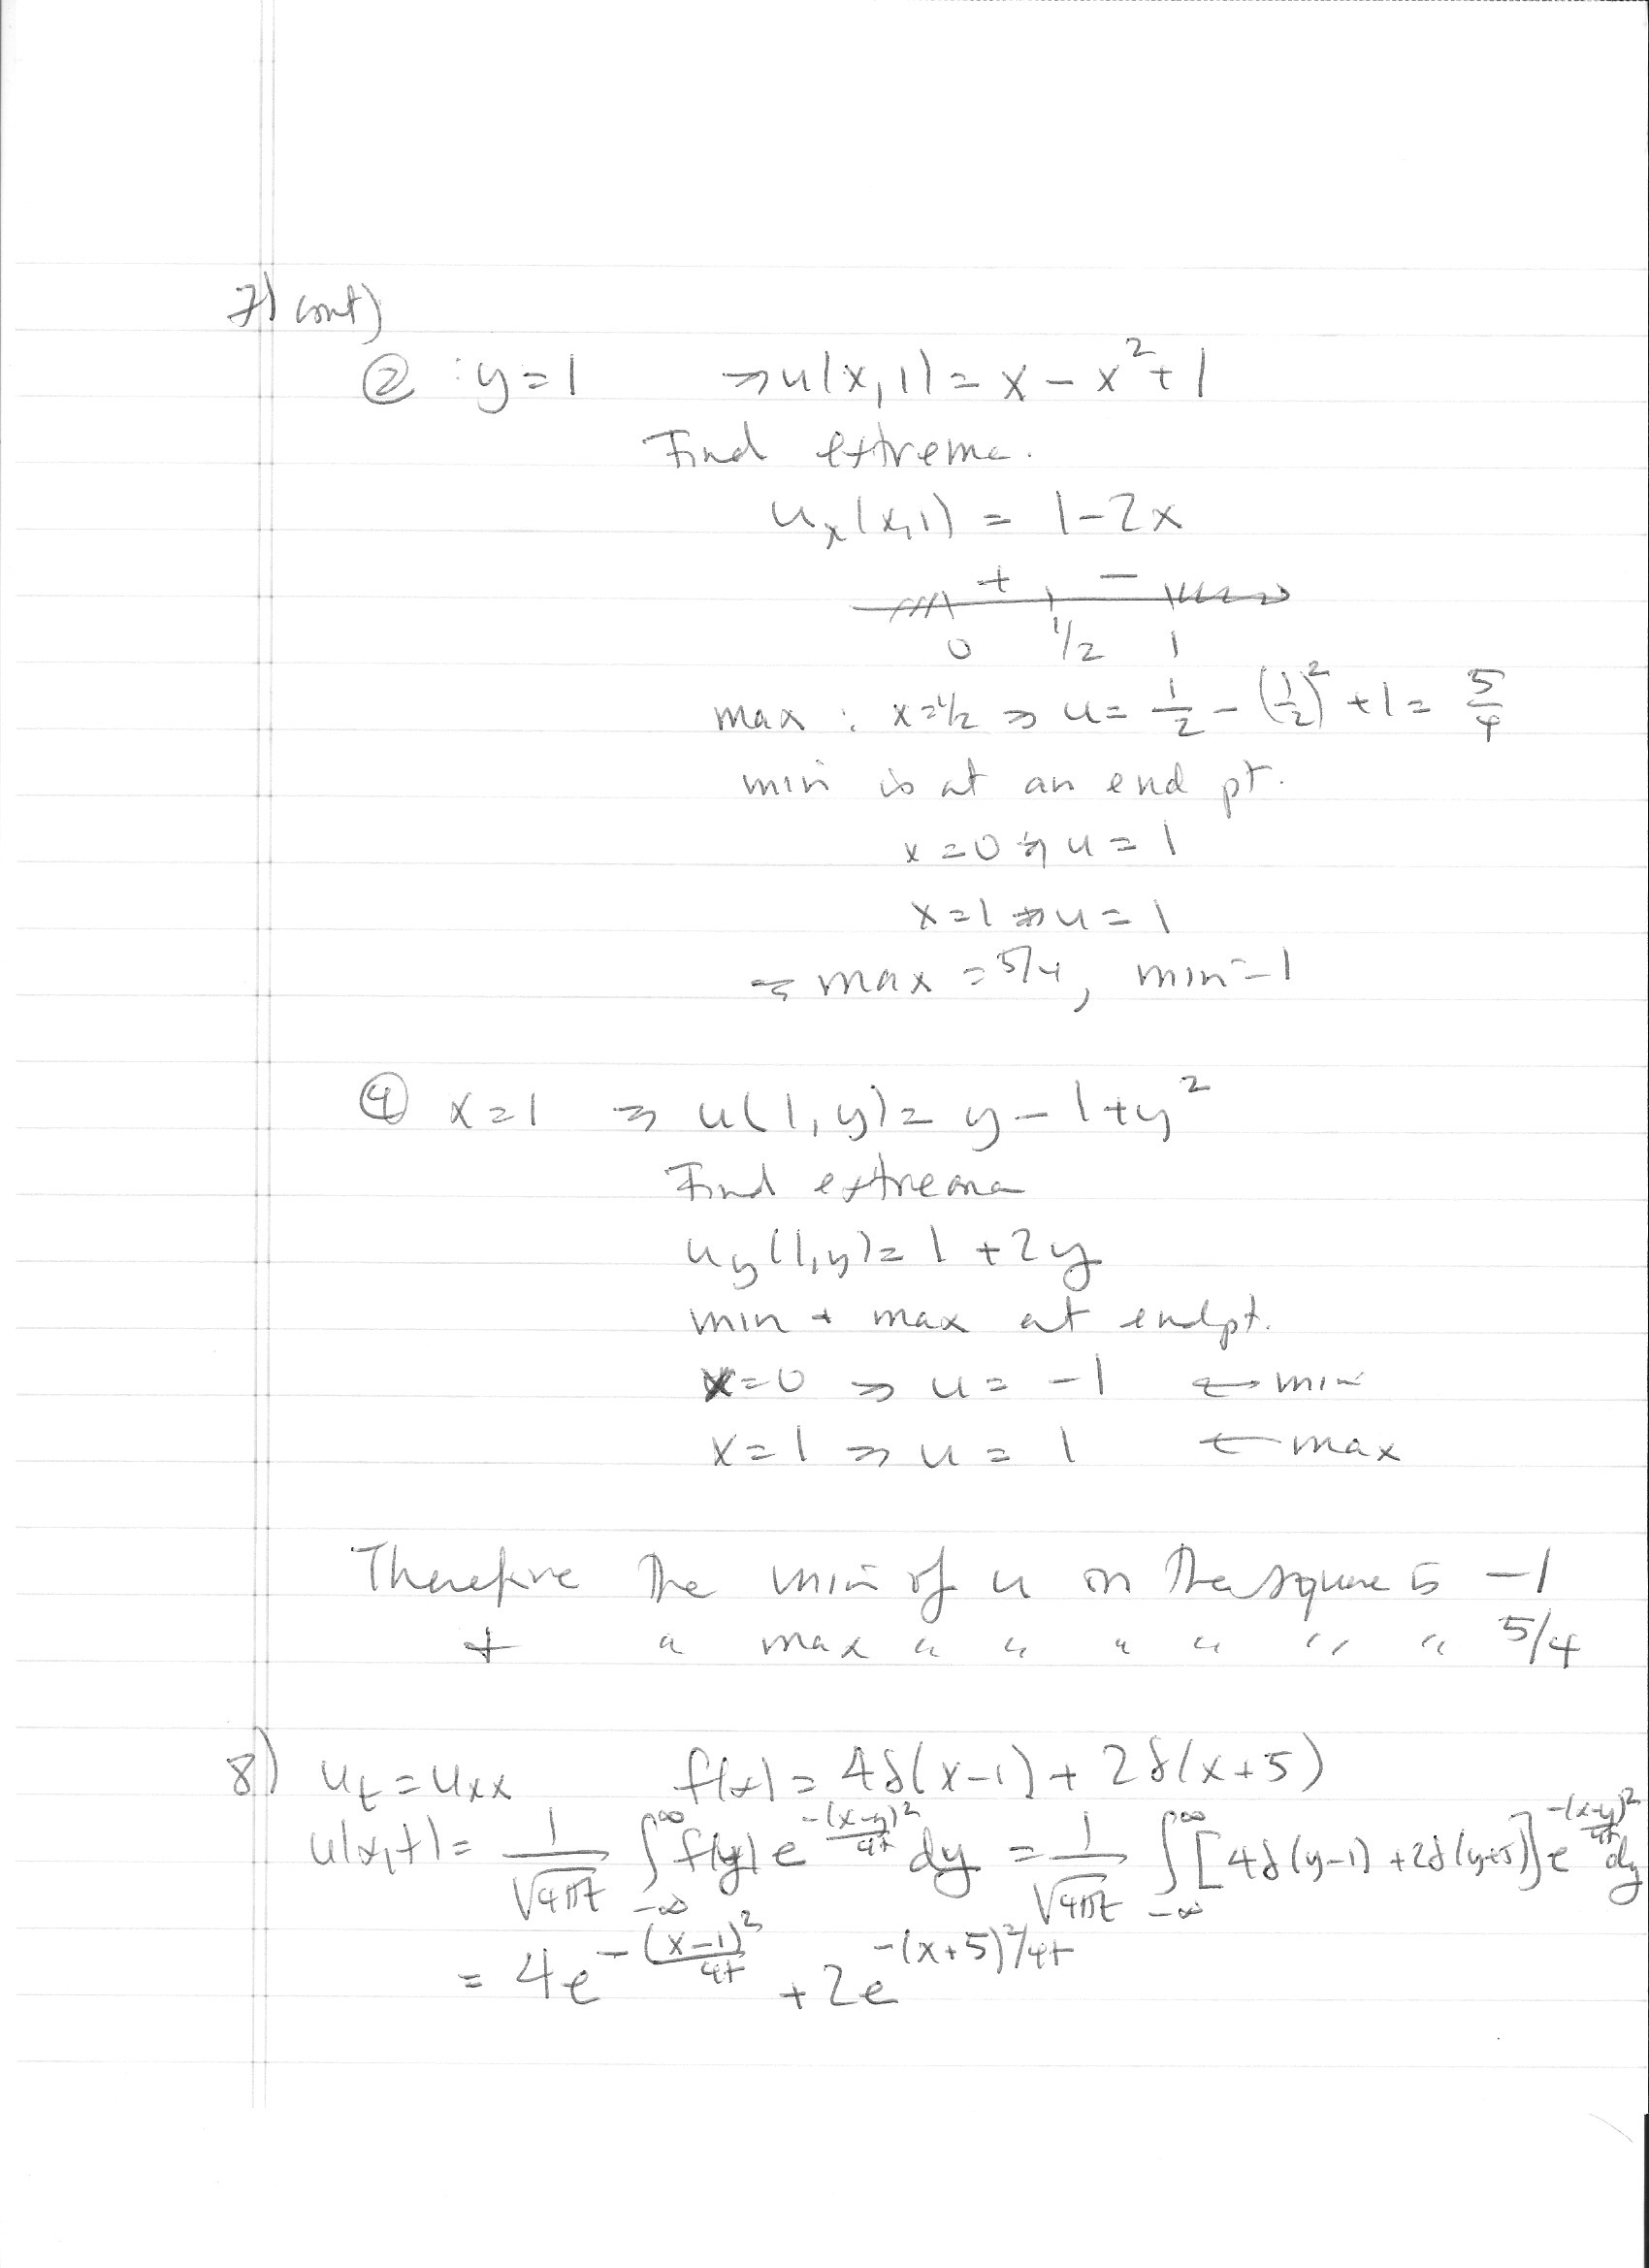 7) cont)
② : y=1 ⇒ u(x,1) = x - x² + 1
Find extrema.
uₓ(x,1) = 1-2x
+ -
0 1/2 1
max : x=1/2 ⇒ u = 1/2 - (1/2)² + 1 = 5/4
min is at an end pt.
x=0 ⇒ u=1
x=1 ⇒ u=1
⇒ max = 5/4, min=1
④ x=1 ⇒ u(1,y) = y-1+y²
Find extrema
u_y(1,y) = 1+2y
min + max at endpt.
x=0 ⇒ u=-1 ← min
x=1 ⇒ u=1 ← max
Therefore the min of u on the square is -1
+ " max " " " " " " 5/4
8) u_t = u_xx f(x) = 4δ(x-1) + 2δ(x+5)
u(x,t) = 1/√(4πt) ∫_{-∞}^{∞} f(y) e^{-(x-y)²/4t} dy = 1/√(4πt) ∫_{-∞}^{∞} [4δ(y-1) + 2δ(y+5)] e^{-(x-y)²/4t} dy
= 4e^{-(x-1)²/4t} + 2e^{-(x+5)²/4t}